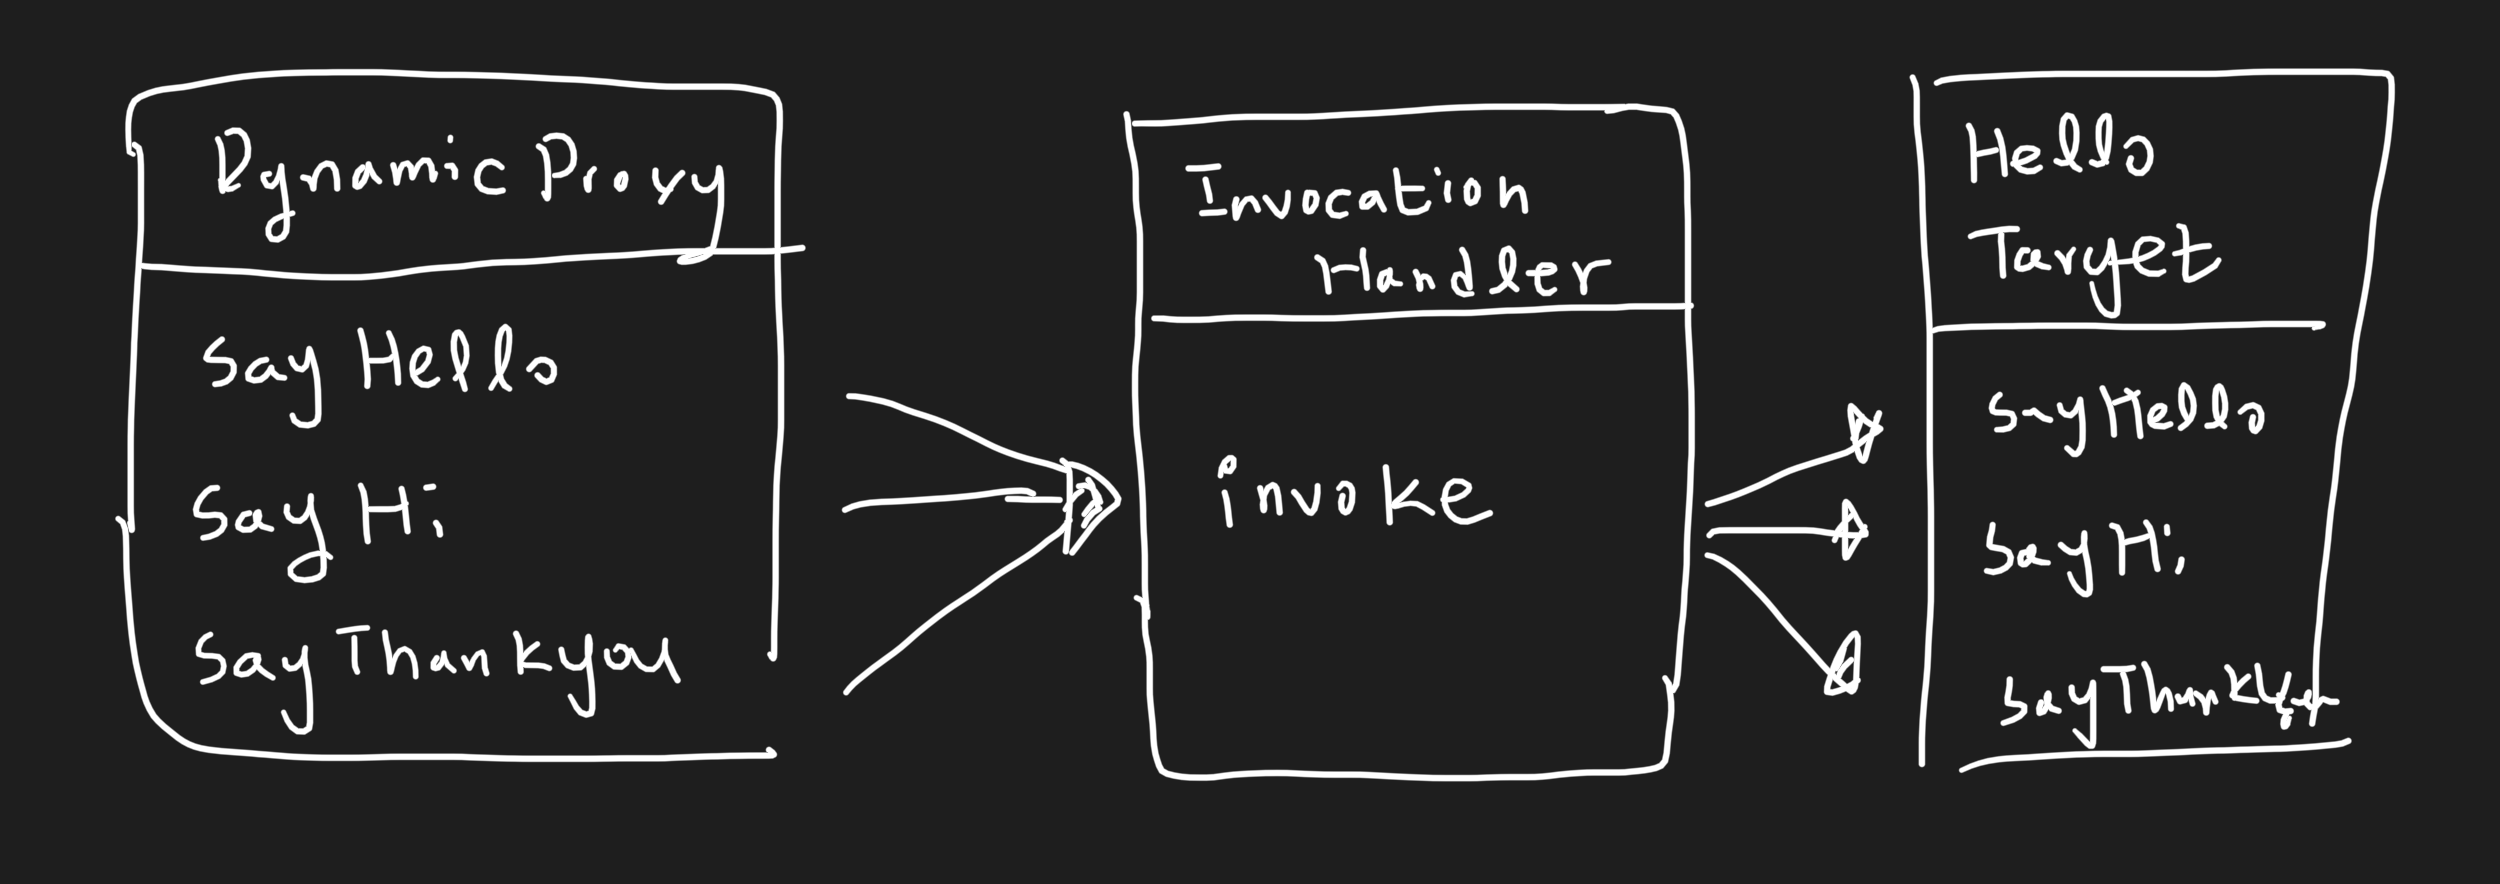 Dynamic Proxy
Say Hello
Say Hi
Say Thankyou
Invocation
Handler
invoke
Hello
Target
Say Hello
Say Hi
Say Thankyou